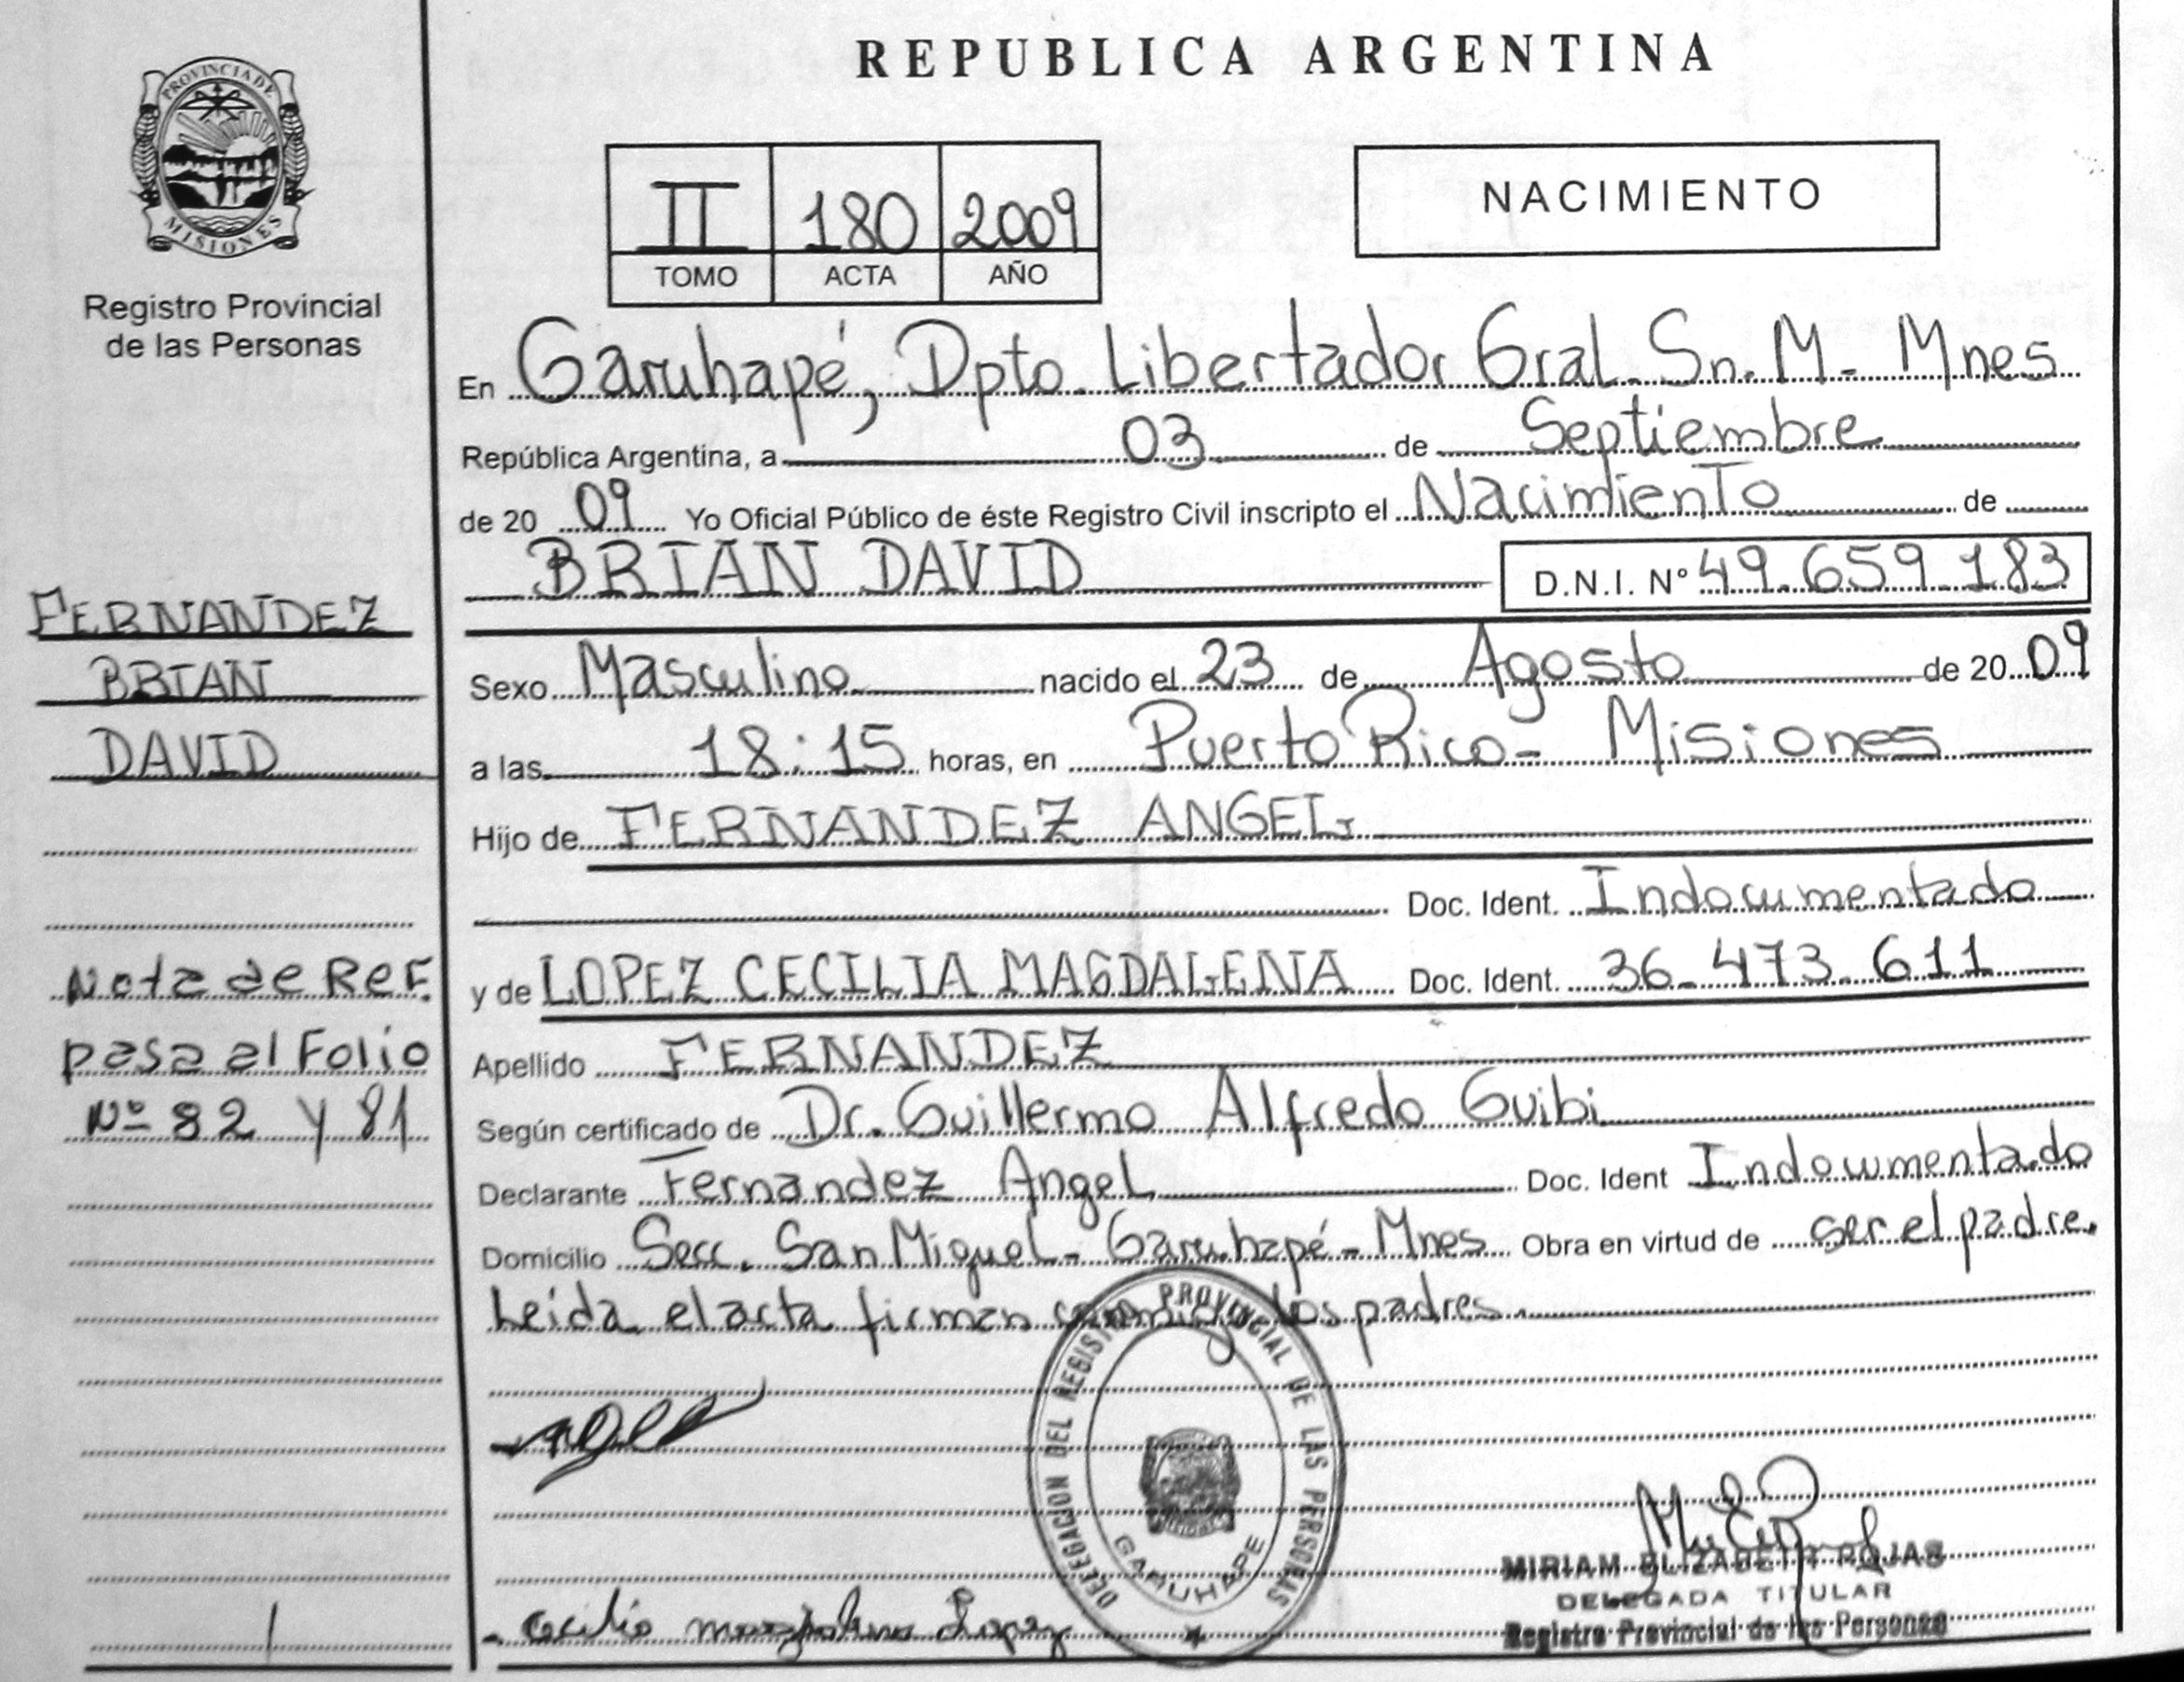 PROVINCIA DE
MISIONES
Registro Provincial
de las Personas
FERNANDEZ
BRIAN
DAVID
Nota de Ref.
pasa al Folio
Nº 82 y 81
REPUBLICA ARGENTINA
II 180 2009
TOMO ACTA AÑO
NACIMIENTO
En Garuhapé, Dpto. Libertador Gral. Sn. M. Mnes
República Argentina, a 03 de Septiembre
de 20 09 Yo Oficial Público de éste Registro Civil inscripto el Nacimiento de
BRIAN DAVID D.N.I. Nº 49.659.183
Sexo Masculino nacido el 23 de Agosto de 20 09
a las 18:15 horas, en Puerto Rico - Misiones
Hijo de FERNANDEZ ANGEL
Doc. Ident. Indocumentado
y de LOPEZ CECILIA MAGDALENA Doc. Ident. 36.473.611
Apellido FERNANDEZ
Según certificado de Dr. Guillermo Alfredo Guibi
Declarante Fernandez Angel Doc. Ident Indocumentado
Domicilio Secc. San Miguel - Garuhapé - Mnes Obra en virtud de ser el padre.
Leida el acta firman conmigo los padres.
DELEGACION DEL REGISTRO PROVINCIAL DE LAS PERSONAS
GARUHAPE
MIRIAM ELIZABETH ROJAS
DELEGADA TITULAR
Registro Provincial de las Personas
Cecilia magdalena Lopez